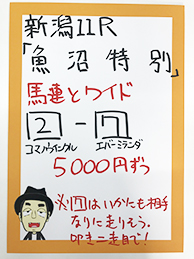 新潟11R
「魚沼特別」
馬連とワイド
2-7
コマノウインクル
エバーミランダ
5000円ずつ
※7はいかにも相手
なりに走りそう。
叩き二走目で!